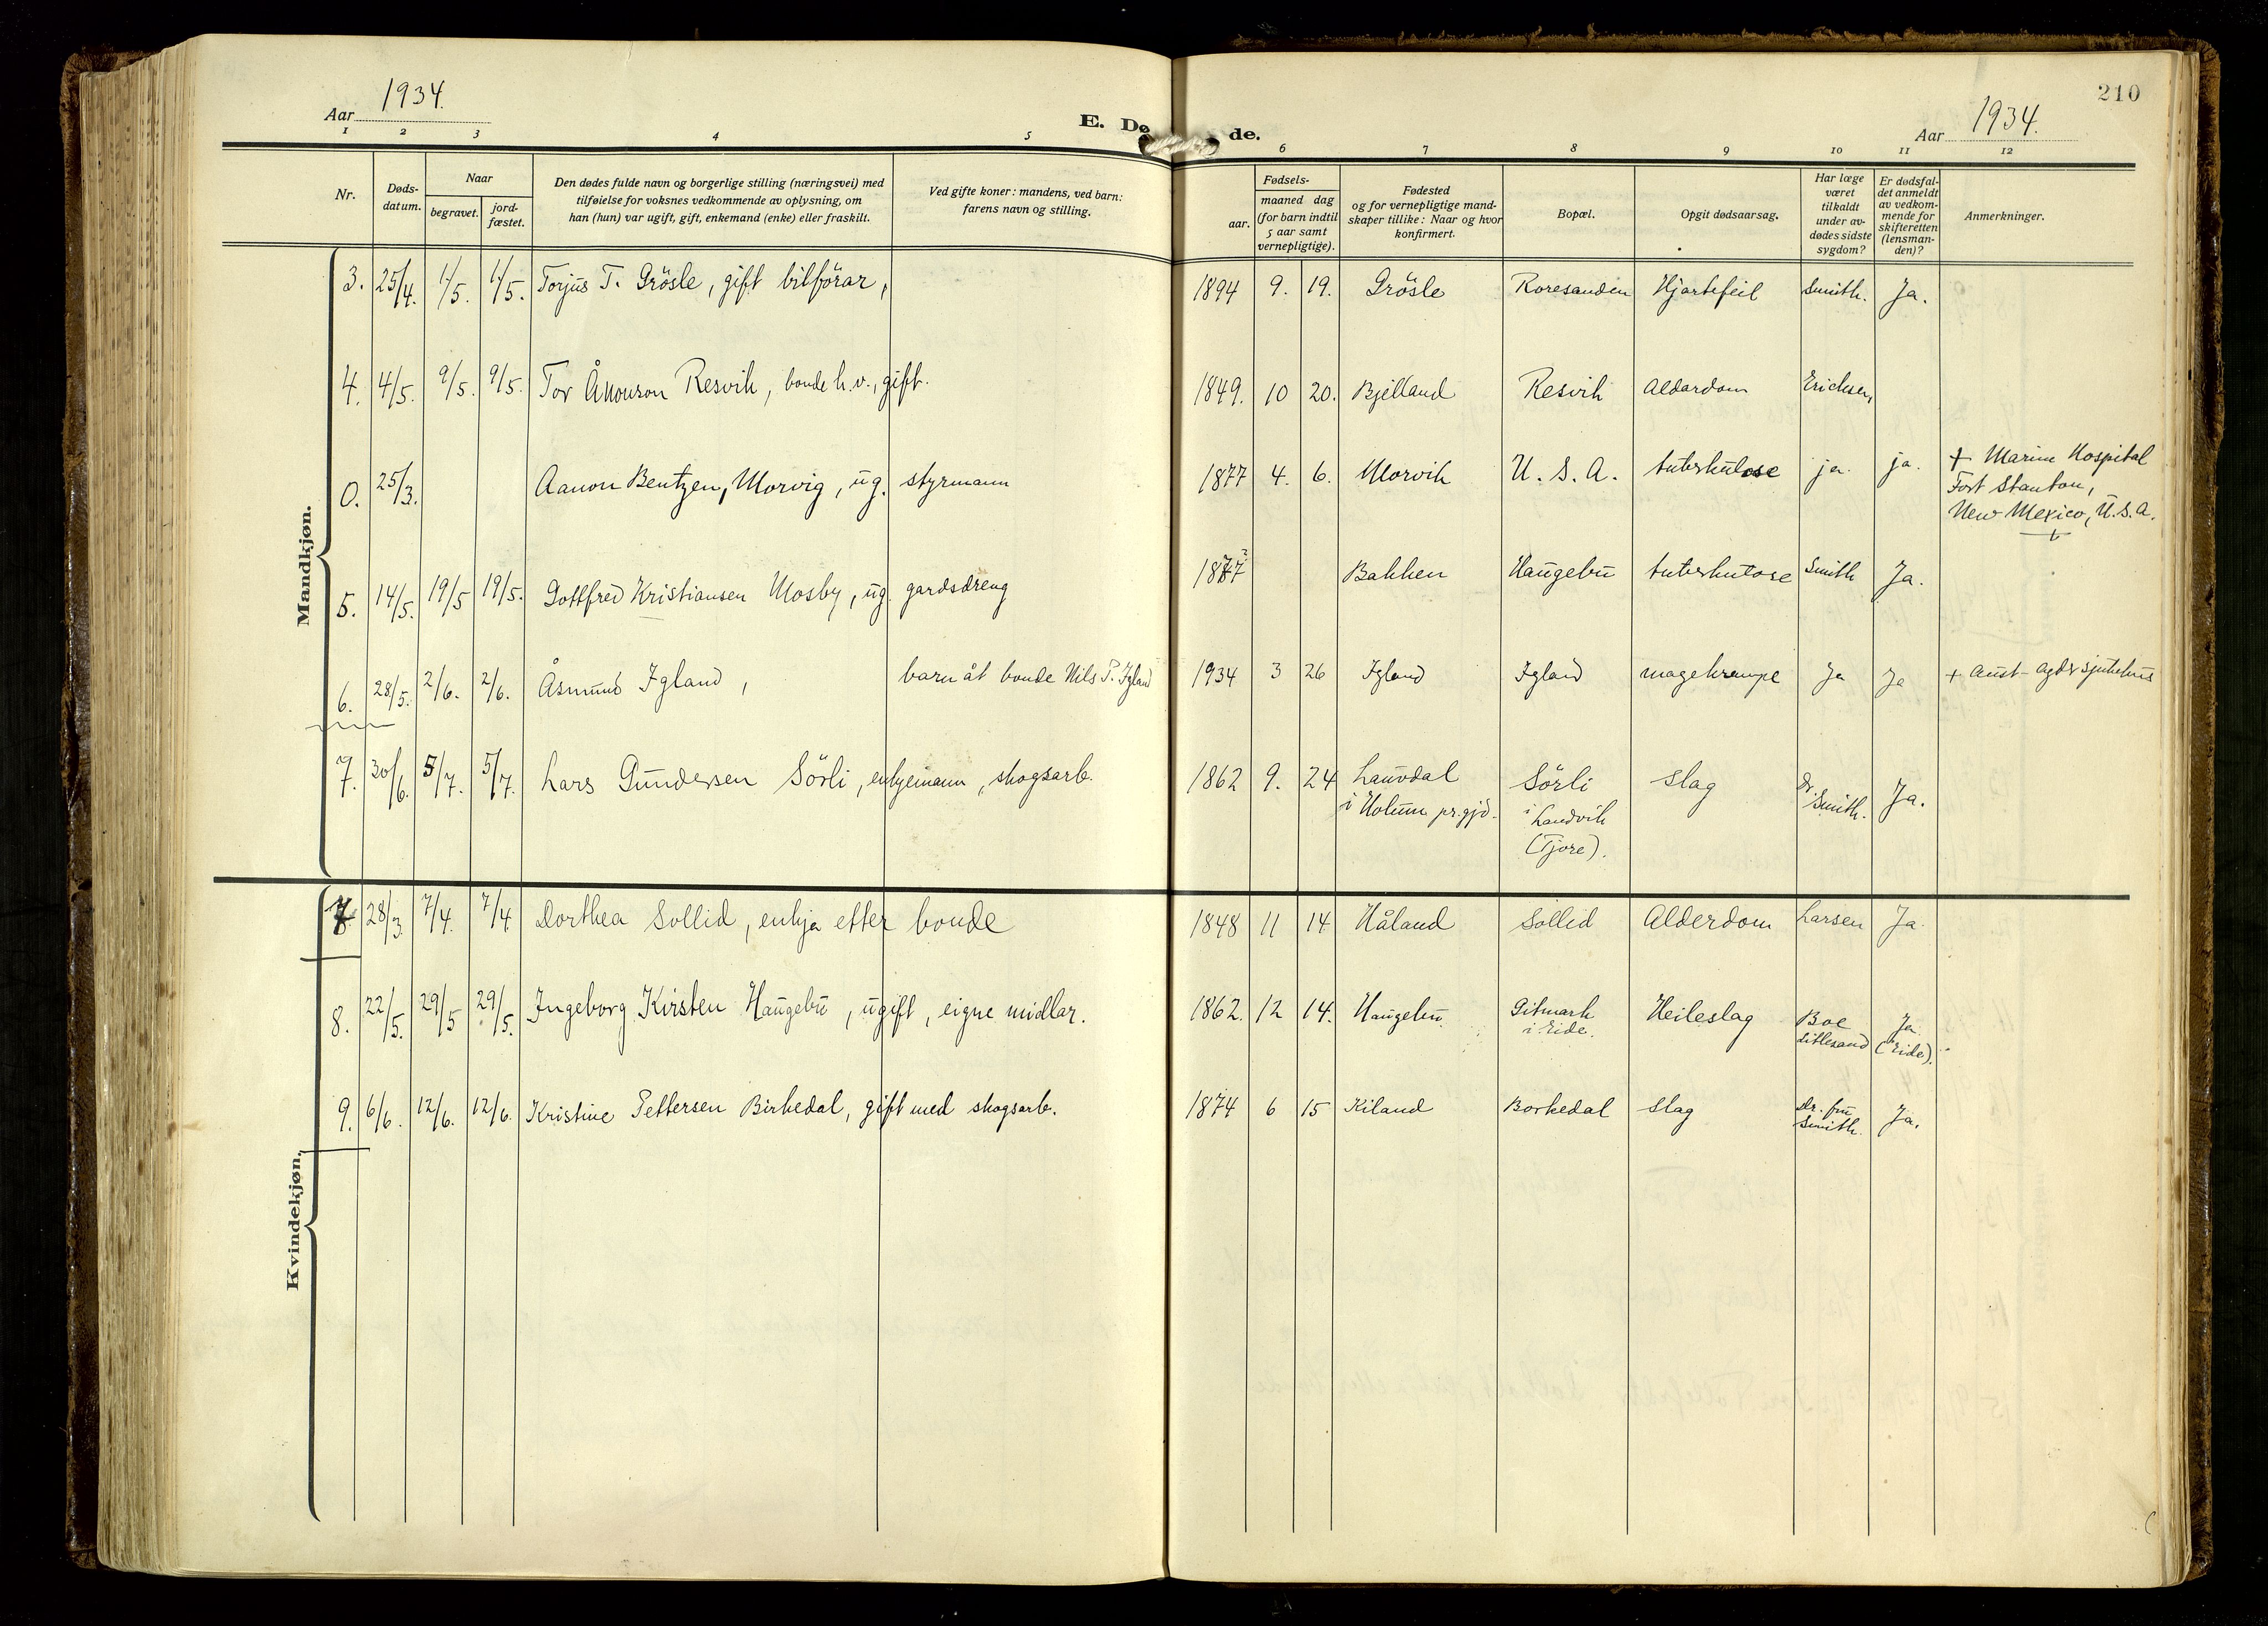 210
Aar 1934.
E. Dø de.
Aar 1934.
1 2 3 4 5 6 7 8 9 10 11 12
Nr.
Døds-
datum.
Naar
begravet.
jord-
fæstet.
Den dødes fulde navn og borgerlige stilling (næringsvei) med
tilføielse for voksnes vedkommende av oplysning, om
han (hun) var ugift, gift, enkemand (enke) eller fraskilt.
Ved gifte koner: mandens, ved barn:
farens navn og stilling.
Fødsels-
aar.
maaned dag
(for barn indtil
5 aar samt
vernepligtige).
Fødested
og for vernepligtige mand-
skaper tillike: Naar og hvor
konfirmert.
Bopæl.
Opgit dødsaarsag.
Har læge
været
tilkaldt
under av-
dødes sidste
sygdom?
Er dødsfal-
det anmeldt
av vedkom-
mende for
skifteretten
(lensman-
den)?
Anmerkninger.
Mandkjøn.
3. 25/4. 1/5. 1/5. Torjus T. Grösle, gift bilförar, 1894 9. 19. Grösle Roresanden Hjartefeil Smith. Ja.
4. 4/5. 9/5. 9/5. Tor Ånonson Resvik, bonde h.v., gift. 1849. 10 20. Bjelland Resvik Aldardom Erichsen,
0. 25/3. Aanon Bentzen, Morvig, ug. styrmann 1877 4. 6. Morvik U. S. A. tuberkulose ja. ja. + Marine Hospital
Fort Stanton,
New Mexico, U.S.A.
5. 14/5. 19/5 19/5. Gottfred Kristiansen Mosby, ug. gardsdreng 1877 Bakken Haugebu tuberkulose Smith Ja.
6. 28/5. 2/6. 2/6. Åsmund Igland, barn åt bonde Nils P. Igland 1934 3 26 Igland Igland magekrampe Ja Ja + Aust-Agder sjukehus
7. 30/6. 5/7. 5/7. Lars Gundersen Sörli, enkjemann, skogsarb. 1862 9. 24 Lauvdal Sörli slag Dr. Ja.
i Holum pr.gjd. i Landvik Smith.
(Tjore).
Kvindekjøn.
7. 28/3. 7/4. 7/4 Dorthea Sollid, enkja etter bonde 1848 11 14 Håland Sollid Alderdom Larsen Ja.
8. 22/5. 29/5 29/5. Ingeborg Kirsten Haugebu, ugift, eigne midlar. 1862. 12 14. Haugebu. Gitmark Heileslag Boe Ja
i Eide. Lillesand (Eide).
9. 6/6. 12/6. 12/6. Kristine Pettersen Birkedal, gift med skogsarb. 1874 6 15 Kiland Borkedal slag Dr. fru Ja.
Smith.